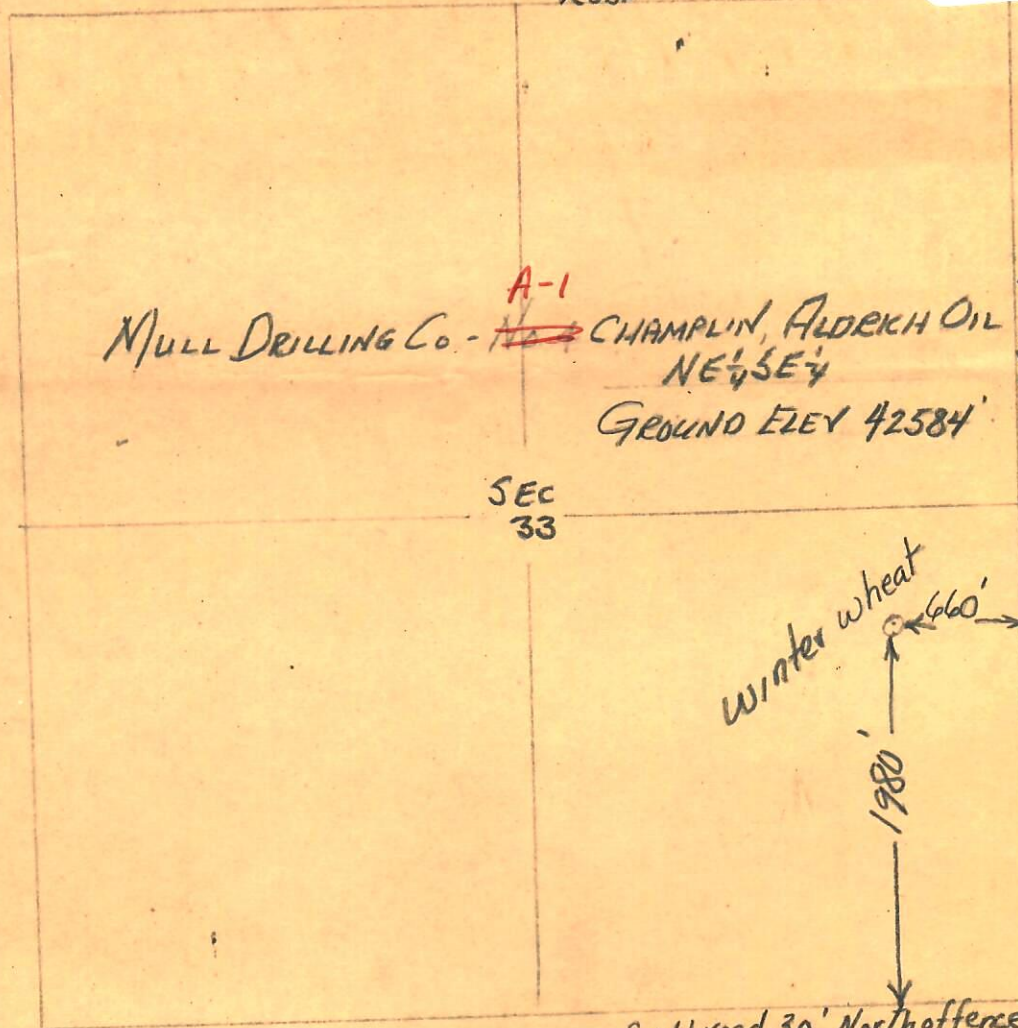 A-1
MULL DRILLING CO - No 1 CHAMPLIN, ALDRICH OIL
NE¼SE¼
GROUND ELEV 42584'
SEC
33
winter wheat
660'
1980'
30' North of fence